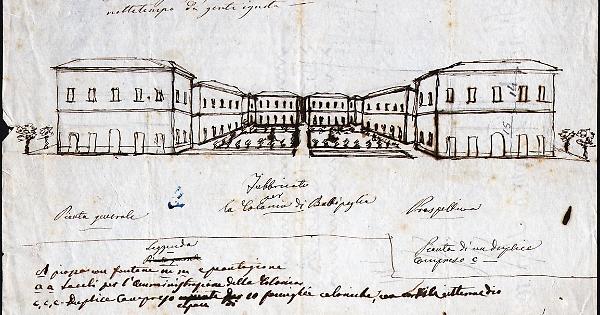 nottetempo da gente ignota
Fabbricato
per
la Colonia di Battipaglia
Pianta generale
Prospettiva
Leggenda
Pianta di un duplice
Compreso C
A piazza con fontane
a a Locali per l'Amministrazione della Colonia
c, c, c - Duplice Compreso 10 famiglie coloniche, con
15